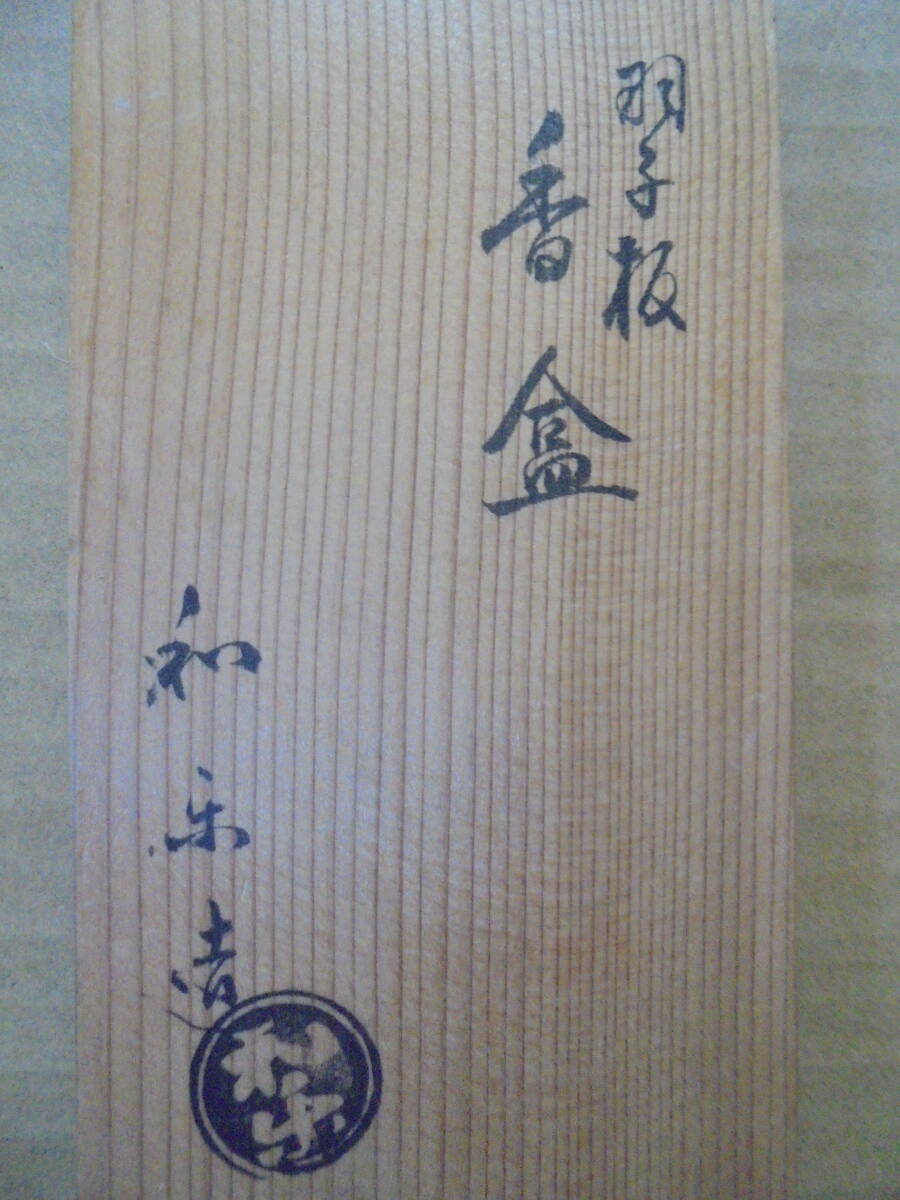 羽子板
香盒
和楽造
和楽